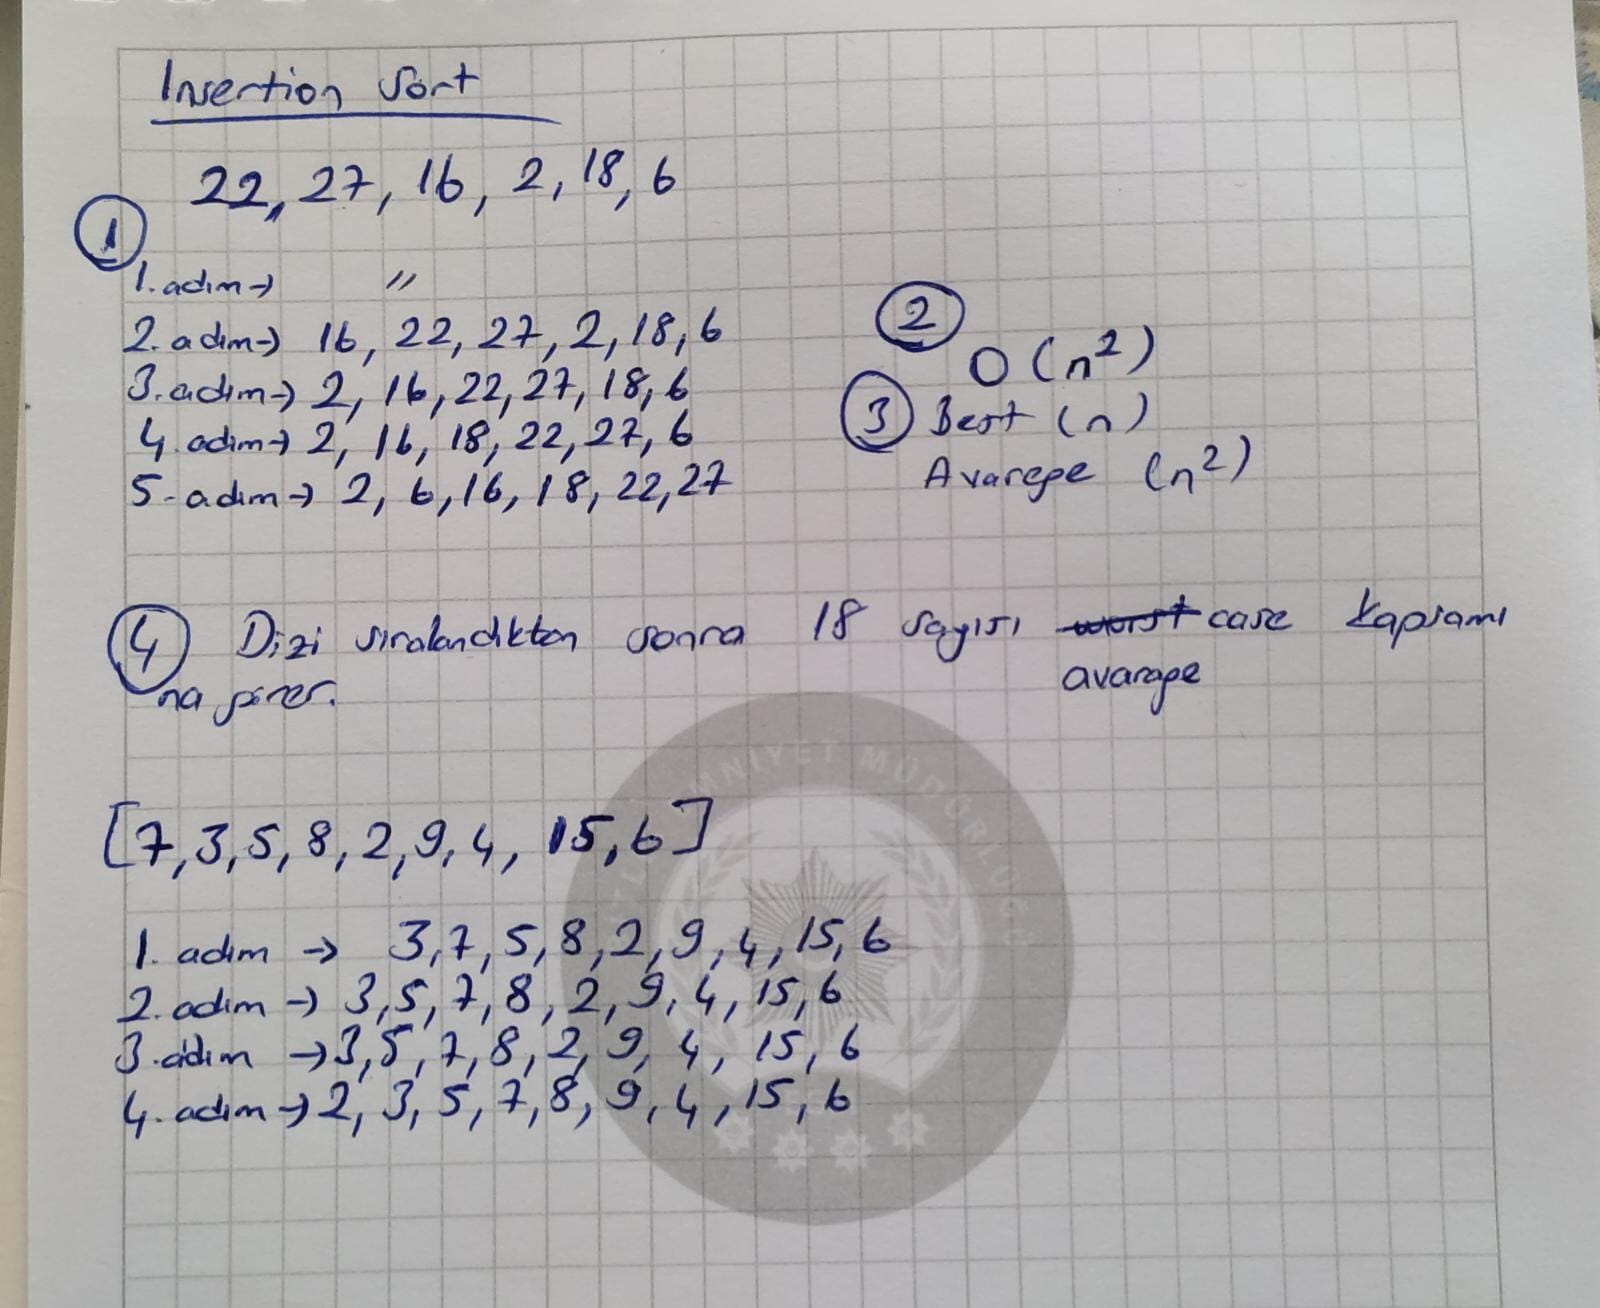 Insertion Sort
22, 27, 16, 2, 18, 6
1
1. adım → "
2. adım → 16, 22, 27, 2, 18, 6
3. adım → 2, 16, 22, 27, 18, 6
4. adım → 2, 16, 18, 22, 27, 6
5. adım → 2, 6, 16, 18, 22, 27
2
O (n²)
3 Best (n)
Avarege (n²)
4 Dizi sıralandıktan sonra 18 sayısı worst case kapsamı
avarage
na girer.
[7, 3, 5, 8, 2, 9, 4, 15, 6]
1. adım → 3, 7, 5, 8, 2, 9, 4, 15, 6
2. adım → 3, 5, 7, 8, 2, 9, 4, 15, 6
3. adım → 3, 5, 7, 8, 2, 9, 4, 15, 6
4. adım → 2, 3, 5, 7, 8, 9, 4, 15, 6
MÜDÜRLÜĞÜ